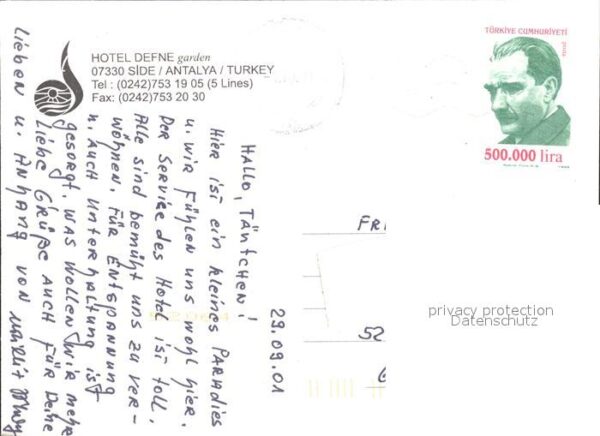 HOTEL DEFNE garden
07330 SİDE / ANTALYA / TURKEY
Tel : (0242)753 19 05 (5 Lines)
Fax: (0242)753 20 30
TÜRKİYE CUMHURİYETİ
posta
500.000 lira
29.09.01
HALLO, TÄNTCHEN!
HIER IST EIN KLEINES PARADIES
U. WIR FÜHLEN UNS WOHL HIER.
DER SERVICE DES HOTEL IST TOLL.
ALLE SIND BEMÜHT UNS ZU VER-
WÖHNEN. FÜR ENTSPANNUNG
U. AUCH UNTERHALTUNG IST
GESORGT. WAS WOLLEN WIR MEHR
LIEBE GRÜßE AUCH FÜR DEINE
LIEBEN U. ANHANG VON
FR
52
privacy protection
Datenschutz